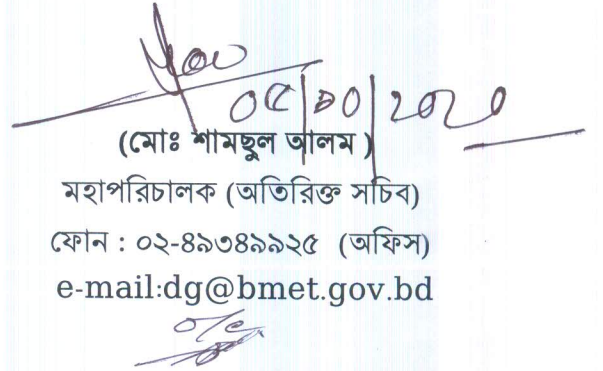 ০৫/১০/২০২০
(মোঃ শামছুল আলম )
মহাপরিচালক (অতিরিক্ত সচিব)
ফোন : ০২-৪৯৩৪৯৯২৫ (অফিস)
e-mail:dg@bmet.gov.bd